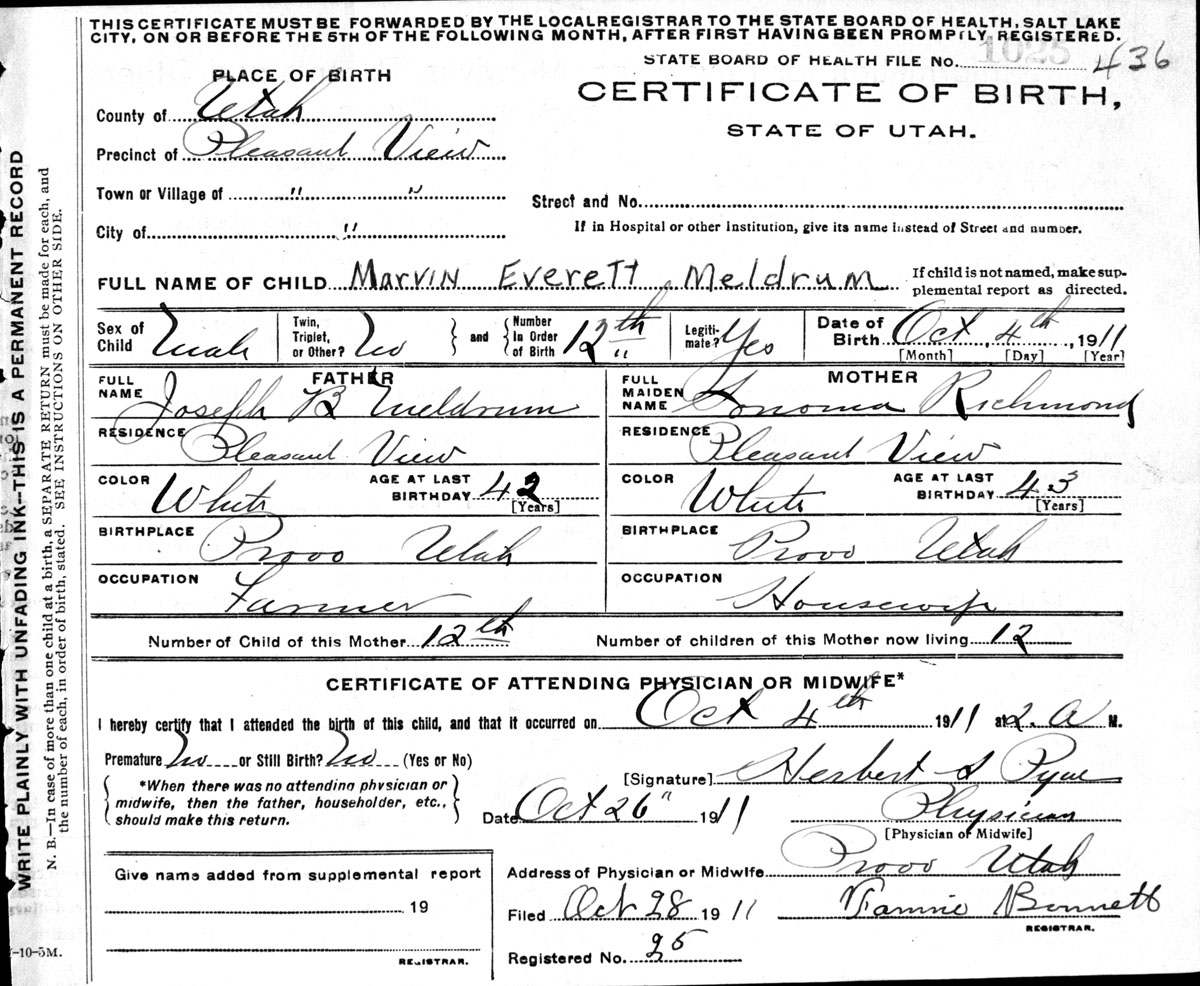 THIS CERTIFICATE MUST BE FORWARDED BY THE LOCAL REGISTRAR TO THE STATE BOARD OF HEALTH, SALT LAKE
CITY, ON OR BEFORE THE 5TH OF THE FOLLOWING MONTH, AFTER FIRST HAVING BEEN PROMPTLY REGISTERED.
STATE BOARD OF HEALTH FILE No. 1025 436
PLACE OF BIRTH
CERTIFICATE OF BIRTH,
STATE OF UTAH.
County of Utah
Precinct of Pleasant View
Town or Village of " "
Street and No.
City of "
If in Hospital or other Institution, give its name instead of Street and number.
FULL NAME OF CHILD Marvin Everett Meldrum
If child is not named, make sup-
plemental report as directed.
Sex of Child Male
Twin, Triplet, or Other? No
and
Number In Order of Birth 12th "
Legiti-mate? Yes
Date of Birth Oct 4th, 1911
[Month] [Day] [Year]
FATHER
FULL NAME Joseph B Meldrum
RESIDENCE Pleasant View
COLOR White
AGE AT LAST BIRTHDAY 42
[Years]
BIRTHPLACE Provo Utah
OCCUPATION Farmer
MOTHER
FULL MAIDEN NAME Sonoma Richmond
RESIDENCE Pleasant View
COLOR White
AGE AT LAST BIRTHDAY 43
[Years]
BIRTHPLACE Provo Utah
OCCUPATION Housewife
Number of Child of this Mother 12th
Number of children of this Mother now living 12
CERTIFICATE OF ATTENDING PHYSICIAN OR MIDWIFE*
I hereby certify that I attended the birth of this child, and that it occurred on Oct 4th 1911 at 2. A M.
Premature No or Still Birth? No (Yes or No)
*When there was no attending physician or
midwife, then the father, householder, etc.,
should make this return.
[Signature] Herbert S Pyne
Date Oct 26" 1911
Physician
[Physician or Midwife]
Address of Physician or Midwife Provo Utah
Filed Oct 28 1911 Fannie Bennett
REGISTRAR.
Registered No. 25
Give name added from supplemental report
19
REGISTRAR.
WRITE PLAINLY WITH UNFADING INK--THIS IS A PERMANENT RECORD
N. B.—In case of more than one child at a birth, a SEPARATE RETURN must be made for each, and
the number of each, in order of birth, stated. SEE INSTRUCTIONS ON OTHER SIDE.
-10-5M.